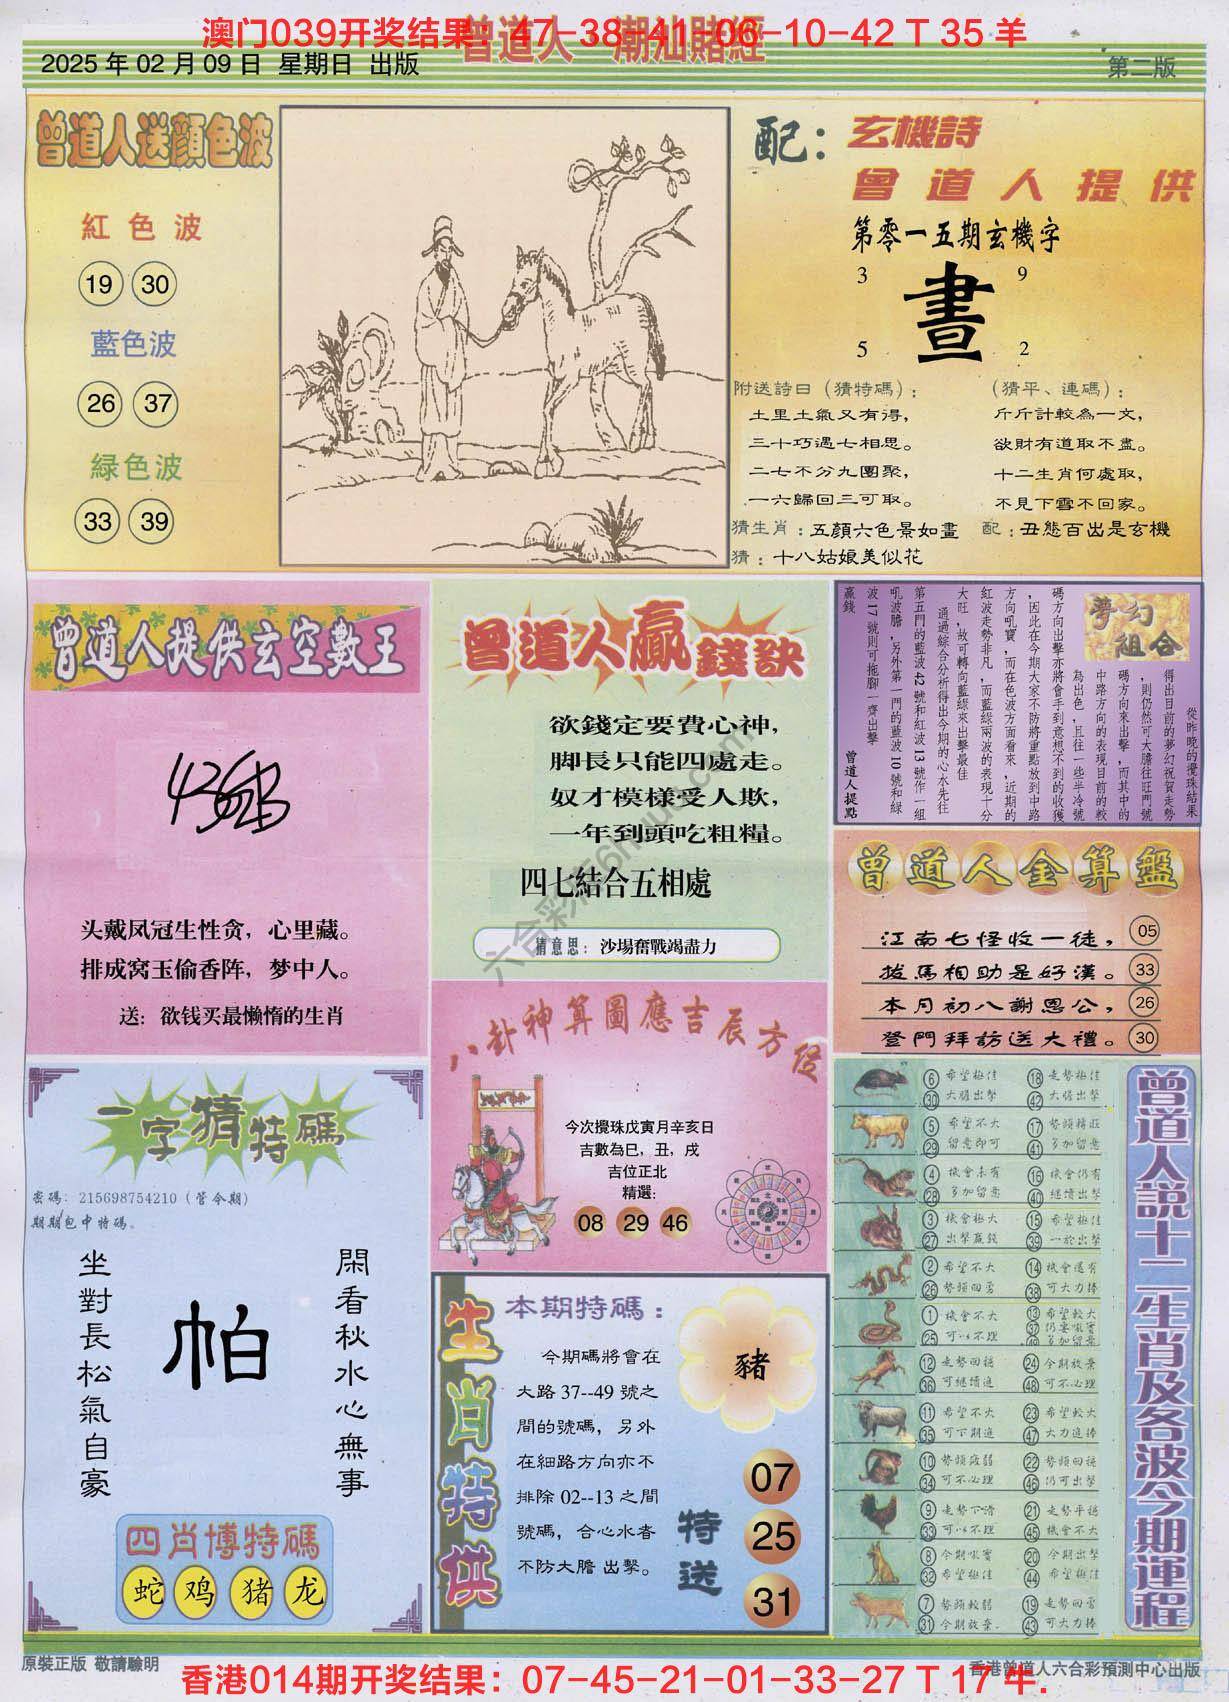 澳门039开奖结果：47-38-41-06-10-42 T 35 羊
曾道人 潮汕賭經
2025 年 02 月 09 日 星期日 出版
第二版
曾道人送顏色波
紅色波
19 30
藍色波
26 37
綠色波
33 39
配：玄機詩
曾道人提供
第零一五期玄機字
3 9
畫
5 2
附送詩曰（猜特碼）：
土里土氣又有得，
三十巧遇七相思。
二七不分九團聚，
一六歸回三可取。
（猜平、連碼）：
斤斤計較為一文，
欲財有道取不盡。
十二生肖何處取，
不見下雪不回家。
猜生肖：五顏六色景如畫
配：丑態百出是玄機
猜：十八姑娘美似花
曾道人提供玄空數王
头戴凤冠生性贪，心里藏。
排成窝玉偷香阵，梦中人。
送：欲钱买最懒惰的生肖
曾道人贏錢訣
欲錢定要費心神，
脚長只能四處走。
奴才模樣受人欺，
一年到頭吃粗糧。
四七結合五相處
猜意思：沙場奮戰竭盡力
六合彩 56hhuu.com
夢幻組合
從昨晚的攪珠結果
得出目前的夢幻祝賀走勢
，則仍然可大膽往旺門號
碼方向來出擊，而其中的
中路方向的表現目前的較
為出色，且往一些半冷號
碼方向出擊亦將會手到意想不到的收獲
，因此在今期大家不防將重點放到中路
方向吼寶，而在色波方面看來，近期的
紅波走勢非凡，而藍綠兩波的表現十分
大旺，故可轉向藍綠來出擊最佳
通過綜合分析得出今期的心水先往
第五門的藍波42號和紅波13號作一組
吼波膽，另外第一門的藍波10號和綠
波17號則可拖腳一齊出擊
贏錢
曾道人提點
曾道人金算盤
江南七怪收一徒， 05
拔馬相助是好漢。 33
本月初八謝恩公， 26
登門拜訪送大禮。 30
八卦神算圖應吉辰方位
今次攪珠戊寅月辛亥日
吉數為巳，丑，戌
吉位正北
精選：
08 29 46
一字猜特碼
密碼：215698754210（管今期）
期期包中特碼。
閑看秋水心無事
帕
坐對長松氣自豪
四肖博特碼
蛇 鸡 猪 龙
生肖特供
本期特碼：
豬
今期碼將會在
大路 37--49 號之
間的號碼，另外
在細路方向亦不
排除 02--13 之間
號碼，合心水者
不防大膽 出擊。
特送
07
25
31
曾道人說十二生肖及各波今期運程
6 希望極佳 18 走勢極佳
30 大膽出擊 42 大膽出擊
5 希望不大 17 勢頭精旺
29 留意即可 41 多加留意
4 機會未有 16 機會仍有
28 多加留意 40 繼續出擊
3 機會極大 15 希望極佳
27 出擊贏錢 39 一於出擊
2 希望不大 14 機會還有
26 勢頭回勇 38 可大力捧
1 機會不大 13 希望較大
37 仍要吼實
25 可以不理 49 多加留意
12 走勢回穩 24 今期放棄
36 可繼續追 48 可不必理
11 希望不大 23 希望較大
35 可下期追 47 大力追捧
10 勢頭疲弱 22 勢頭回穩
34 可不必理 46 仍可出擊
9 走勢下滑 21 走勢平穩
33 可以不理 45 機會不大
8 今期吼實 20 今期出擊
32 希望極佳 44 希望極佳
7 勢頭較弱 19 走勢回雪
31 今期放棄. 43 可大力捧
原裝正版 敬請驗明
香港曾道人六合彩預測中心出版
香港014期开奖结果：07-45-21-01-33-27 T 17 牛.